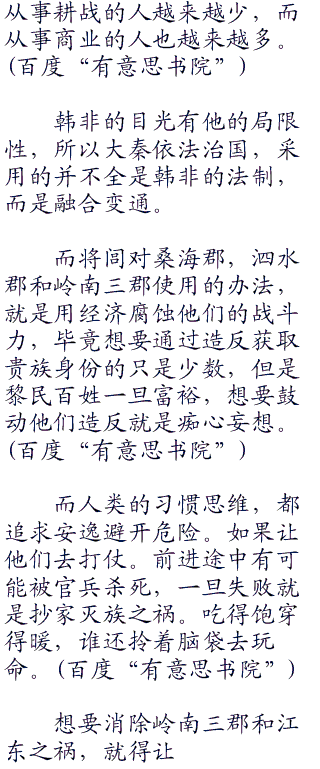 从事耕战的人越来越少，而
从事商业的人也越来越多。
(百度“有意思书院”)
韩非的目光有他的局限
性，所以大秦依法治国，采
用的并不全是韩非的法制，
而是融合变通。
而将闾对桑海郡，泗水
郡和岭南三郡使用的办法，
就是用经济腐蚀他们的战斗
力，毕竟想要通过造反获取
贵族身份的只是少数，但是
黎民百姓一旦富裕，想要鼓
动他们造反就是痴心妄想。
(百度“有意思书院”)
而人类的习惯思维，都
追求安逸避开危险。如果让
他们去打仗。前进途中有可
能被官兵杀死，一旦失败就
是抄家灭族之祸。吃得饱穿
得暖，谁还拎着脑袋去玩
命。(百度“有意思书院”)
想要消除岭南三郡和江
东之祸，就得让